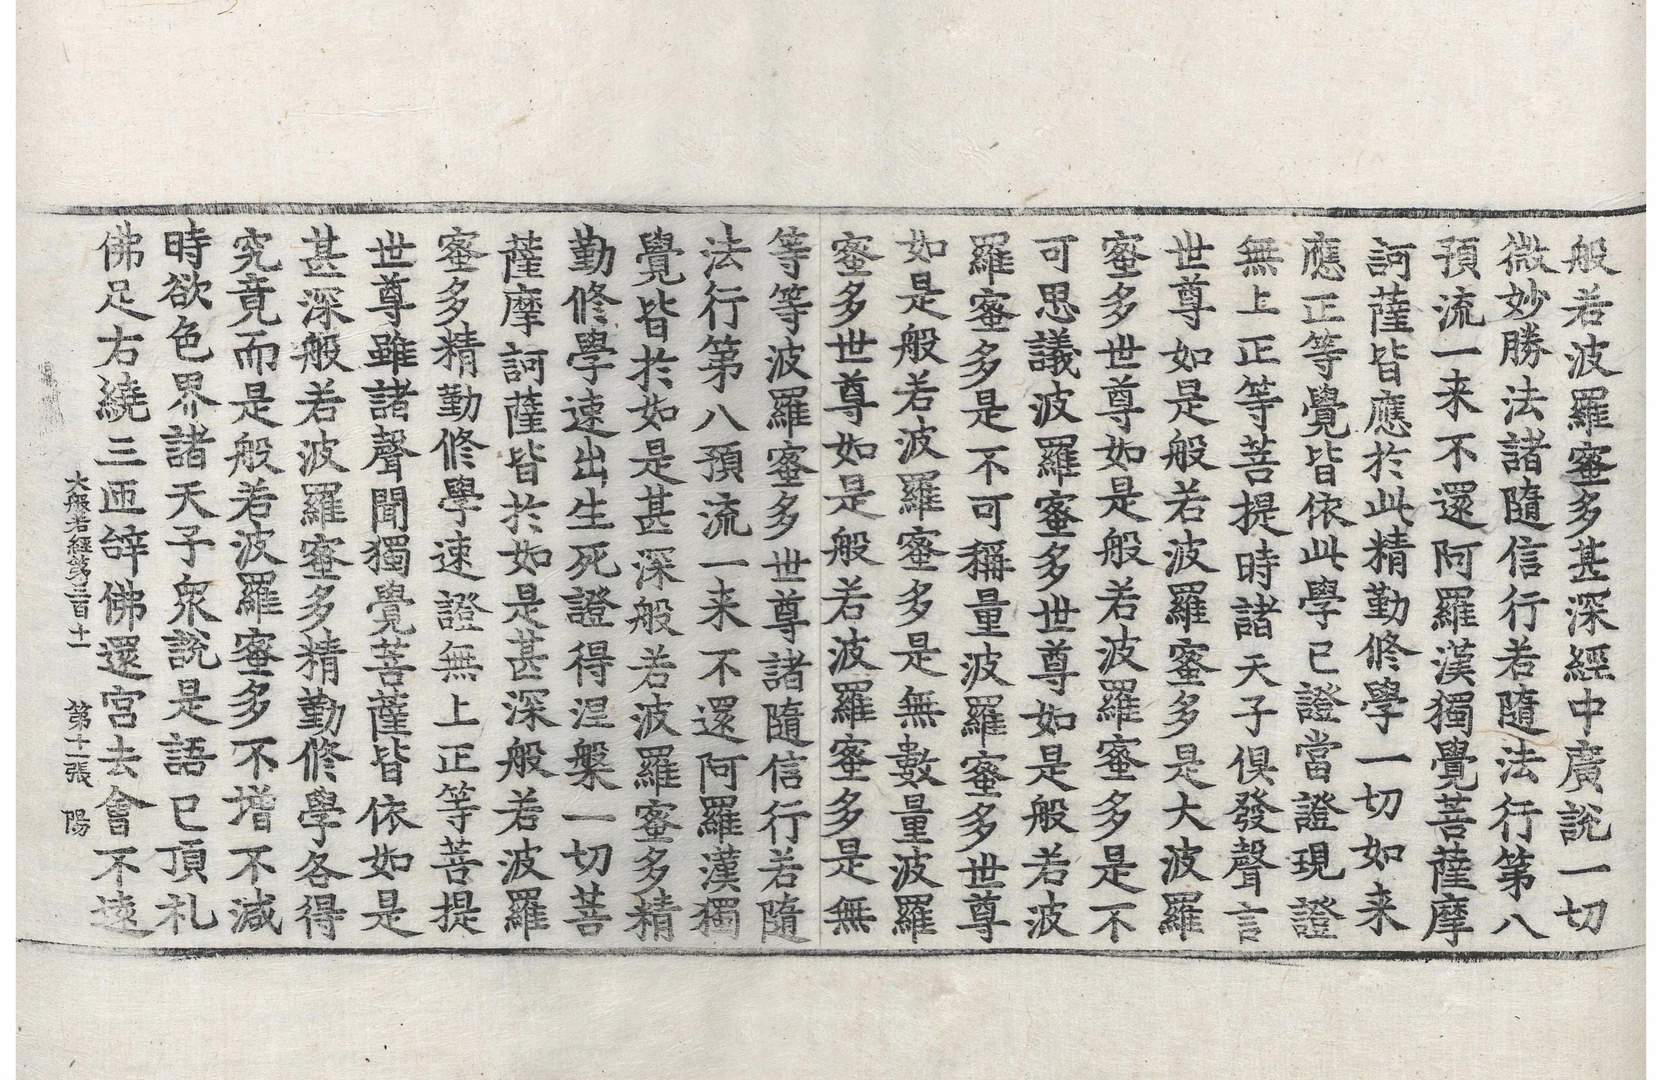 般若波羅蜜多甚深經中廣說一切
微妙勝法諸隨信行若隨法行第八
預流一来不還阿羅漢獨覺菩薩摩
訶薩皆應於此精勤修學一切如来
應正等覺皆依此學已證當證現證
無上正等菩提時諸天子俱發聲言
世尊如是般若波羅蜜多是大波羅
蜜多世尊如是般若波羅蜜多是不
可思議波羅蜜多世尊如是般若波
羅蜜多是不可稱量波羅蜜多世尊
如是般若波羅蜜多是無數量波羅
蜜多世尊如是般若波羅蜜多是無
等等波羅蜜多世尊諸隨信行若隨
法行第八預流一来不還阿羅漢獨
覺皆於如是甚深般若波羅蜜多精
勤修學速出生死證得涅槃一切菩
薩摩訶薩皆於如是甚深般若波羅
蜜多精勤修學速證無上正等菩提
世尊雖諸聲聞獨覺菩薩皆依如是
甚深般若波羅蜜多精勤修學各得
究竟而是般若波羅蜜多不增不減
時欲色界諸天子眾說是語已頂礼
佛足右繞三匝辝佛還宮去會不遠
大般若經第三百十一 第十一張 陽